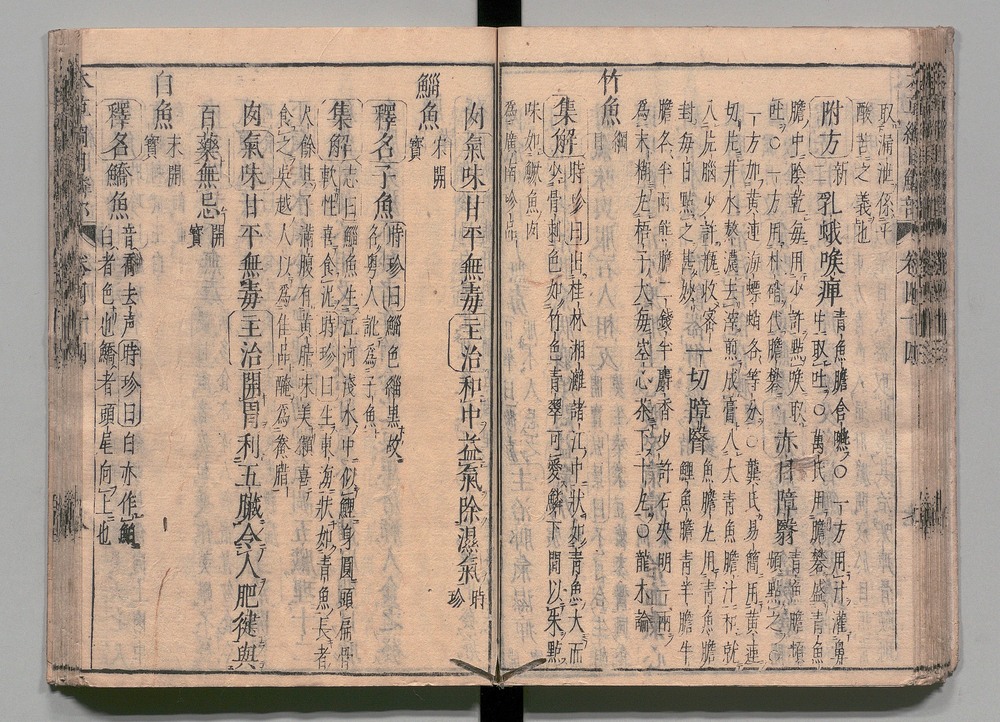 取漏泄係乎
酸苦之義也
附方新三乳蛾喉痺青魚膽含嚥○一方用汁灌鼻
中取吐○萬氏用膽礬盛青魚
膽中陰乾每用少許點喉取
吐○一方用朴硝代膽礬赤目障翳青魚膽頻
頻點之○
一方加黃連海螵蛸各等分○龔氏易簡用黃連
切片井水熬濃去滓煎成膏入大青魚膽汁和就
入片腦少許瓶收密一切障瞖魚膽丸用青魚膽
鯉魚膽青羊膽牛
封每日點之甚妙
膽各半兩熊膽二錢半麝香少許石決明一兩
為末糊丸梧子大每空心茶下十丸○龍木論
竹魚綱
集解時珍曰出桂林湘灕諸江中狀如青魚大而
少骨刺色如竹色青翠可愛鱗下間以朱點
味如鱖魚肉
為廣南珍品
肉氣味甘平無毒主治和中益氣除濕氣時珍
鯔魚宋開寶
釋名子魚時珍曰鯔色緇黑故
名粵人訛為子魚
集解志曰鯔魚生江河淺水中似鯉身圓頭扁骨
軟性喜食泥時珍曰生東海狀如青魚長者
尺餘其子滿腹有黃脂味美獺喜
食之吳越人以為佳品醃為鮝腊
肉氣味甘平無毒主治開胃利五臟令人肥健與
百藥無忌開寶
白魚宋開寶
釋名鱎魚音喬去声時珍曰白亦作鮊
白者色也鱎者頭尾向上也